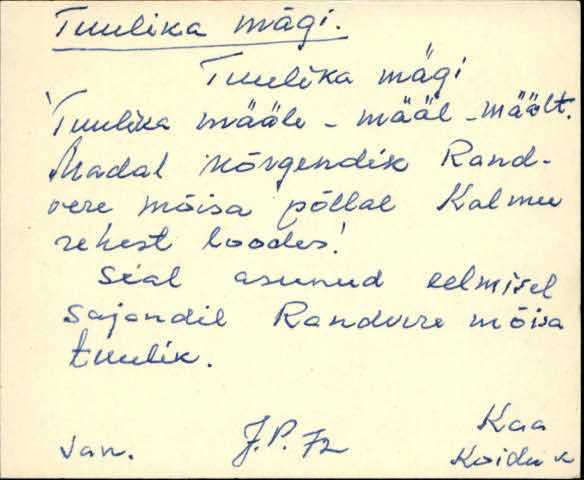 Tuulika mägi.
Tuulika mägi
'Tuulika määle - määl - mäält.
Madal kõrgendik Rand-
vere mõisa põllal Kalmu
rehest loodes!
Seal asunud eelmisel
sajandil Randvere mõisa
tuulik.
Kaa
van. J.P. 72 Koidu k